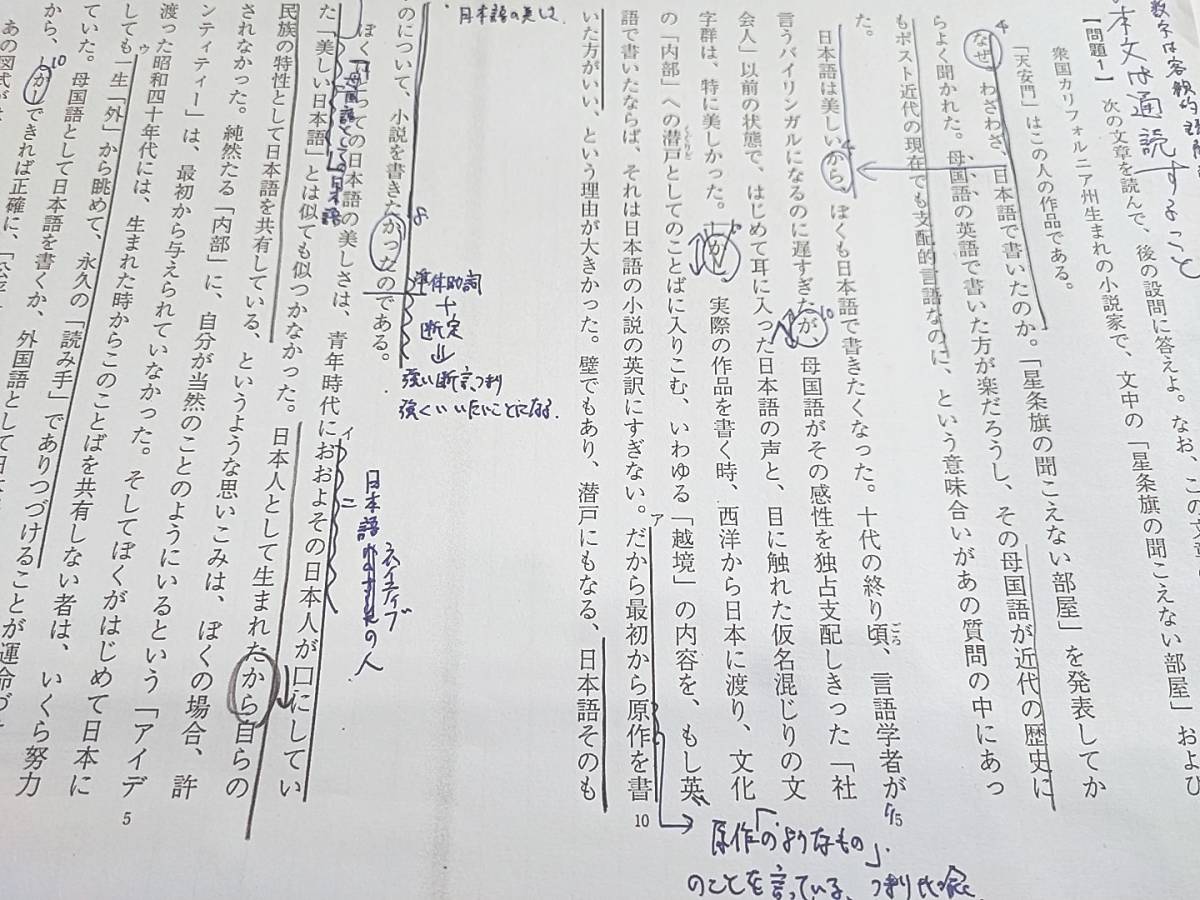 数字は客観的
本文は通読すること
【問題1】 次の文章を読んで、後の設問に答えよ。なお、この文章
衆国カリフォルニア州生まれの小説家で、文中の「星条旗の聞こえない部屋」および
「天安門」はこの人の作品である。
4
なぜ、わざわざ、日本語で書いたのか。「星条旗の聞こえない部屋」を発表してか
らよく聞かれた。母国語の英語で書いた方が楽だろうし、その母国語が近代の歴史に
もポスト近代の現在でも支配的言語なのに、という意味合いがあの質問の中にあっ
た。
日本語は美しいから、ぼくも日本語で書きたくなった。十代の終り頃、言語学者が
ごろ
5
言うバイリンガルになるのに遅すぎたが、母国語がその感性を独占支配しきった「社
10
会人」以前の状態で、はじめて耳に入った日本語の声と、目に触れた仮名混じりの文
字群は、特に美しかった。しかし、実際の作品を書く時、西洋から日本に渡り、文化
の「内部」への潜戸としてのことばに入りこむ、いわゆる「越境」の内容を、もし英
くぐりど
語で書いたならば、それは日本語の小説の英訳にすぎない。だから最初から原作を書
ア
10
いた方がいい、という理由が大きかった。壁でもあり、潜戸にもなる、日本語そのも
原作「のようなもの」
のことを言っている、つまり
日本語の美しさ
のについて、小説を書きたかったのである。
8
準体助詞
+
断定
⇓
強い断定、つまり
強くいいたいことになる。
ぼくにとっての日本語の美しさは、青年時代におおよその日本人が口にしてい
母国語としての日本語
イ
ニ
ネイティブ
の人
た「美しい日本語」とは似ても似つかなかった。日本人として生まれたから自らの
民族の特性として日本語を共有している、というような思いこみは、ぼくの場合、許
されなかった。純然たる「内部」に、自分が当然のことのようにいるという「アイデ
5
ンティティー」は、最初から与えられていなかった。そしてぼくがはじめて日本に
渡った昭和四十年代には、生まれた時からこのことばを共有しない者は、いくら努力
ウ
しても一生「外」から眺めて、永久の「読み手」でありつづけることが運命づけ
ていた。母国語として日本語を書くか、外国語として日
から、しかしできれば正確に、
10
あの図式が